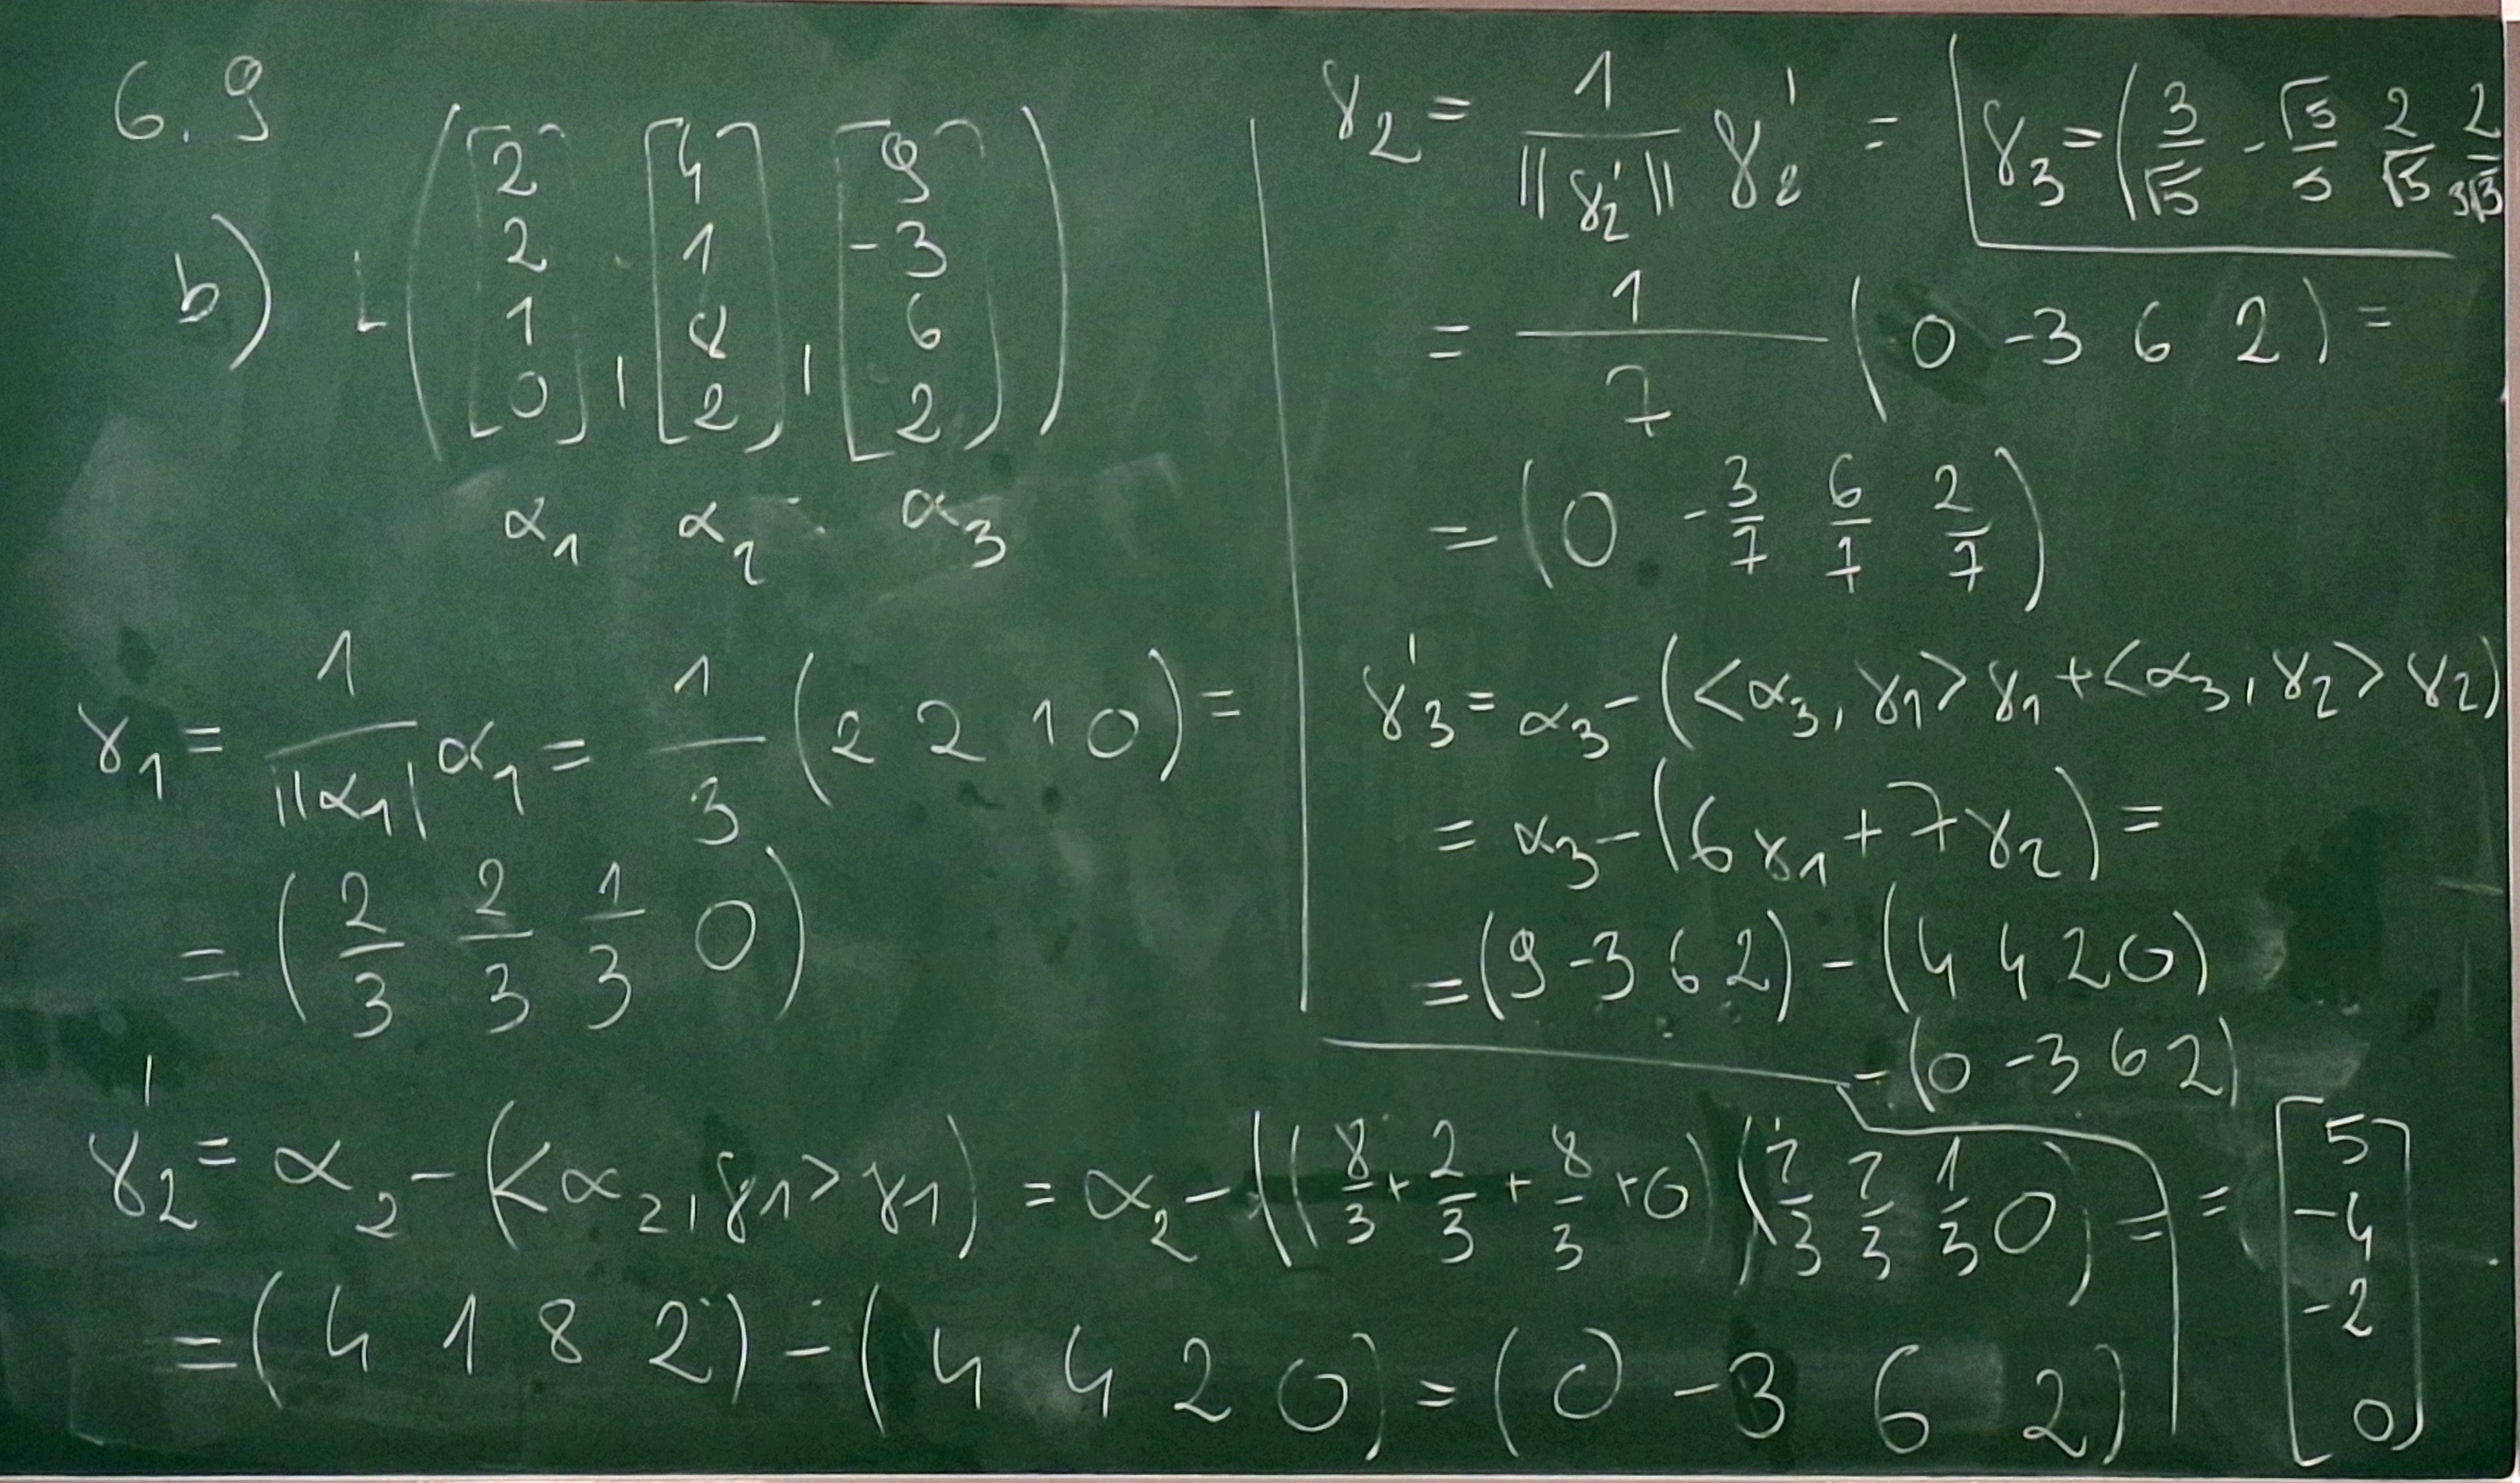 6.9
b) L([2 2 1 0], [4 1 8 2], [9 -3 6 2])
α₁ α₂ α₃
γ₁ = 1/||α₁| α₁ = 1/3 (2 2 1 0) =
= (2/3 2/3 1/3 0)
γ₂' = α₂ - (<α₂, γ₁> γ₁) = α₂ - ((8/3 + 2/3 + 8/3 + 0)(2/3 2/3 1/3 0) =
= (4 1 8 2) - (4 4 2 0) = (0 -3 6 2)
γ₂ = 1/||γ₂'|| γ₂' =
= 1/7 (0 -3 6 2) =
= (0 -3/7 6/7 2/7)
γ₃' = α₃ - (<α₃, γ₁> γ₁ + <α₃, γ₂> γ₂)
= α₃ - (6γ₁ + 7γ₂) =
= (9 -3 6 2) - (4 4 2 0)
- (0 -3 6 2)
= [5 -4 -2 0]
γ₃ = (3/√5 - √5/5 2/√5 2/3√5